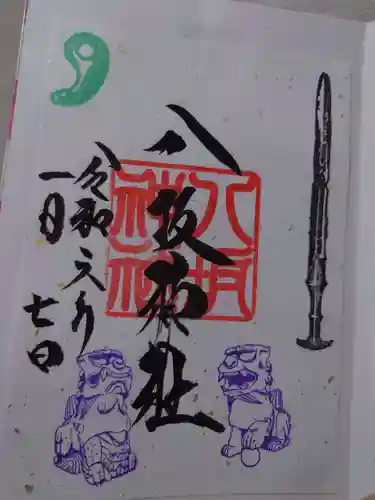 八坂神社
八坂神社
令和六年
一月七日